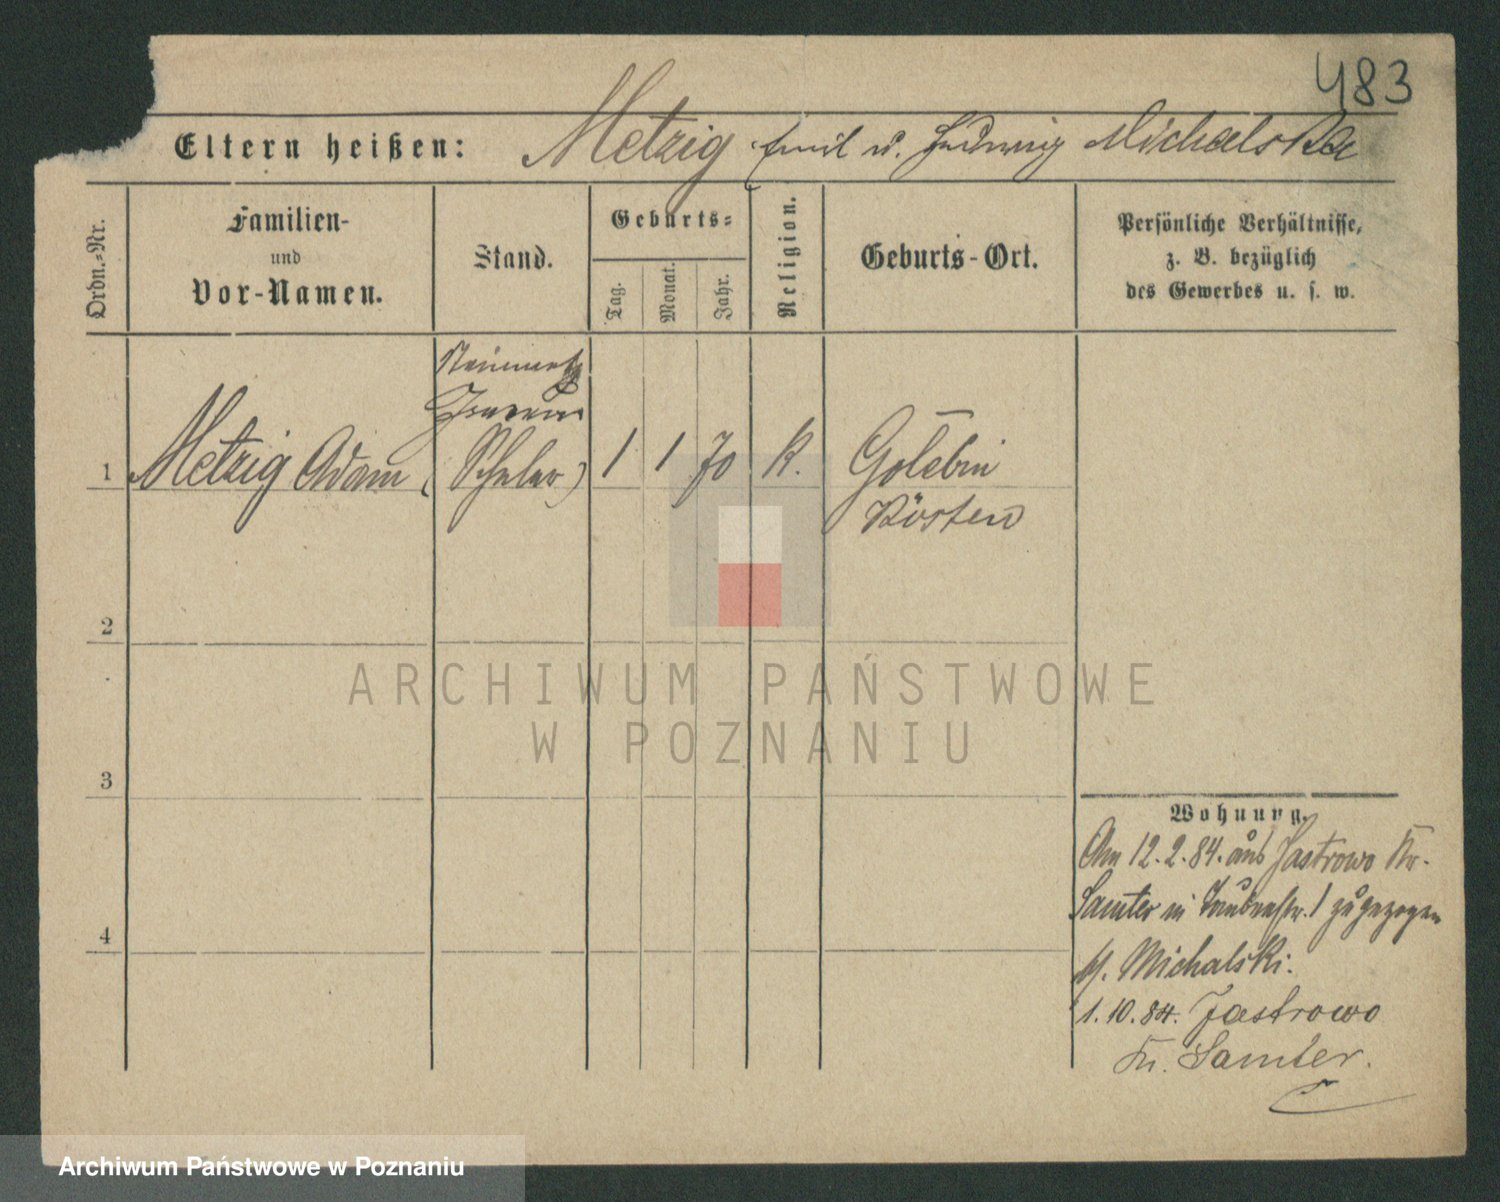 483
Eltern heißen: Metzig Emil u. Hedwig Michalska
Ordn.-Nr.
Familien-
und
Vor-Namen.
Stand.
Geburts-
Tag.
Monat.
Jahr.
Religion.
Geburts-Ort.
Persönliche Verhältnisse,
z. B. bezüglich
des Gewerbes u. s. w.
1 Metzig Adam (Schüler) 1 1 70 k. Golebin
Kosten
2
3
4
ARCHIWUM PAŃSTWOWE
W POZNANIU
Wohnung.
Am 12.2.84. aus Jastrowo Kr.
Samter in Taubenstr. 1 zugezogen
b/. Michalski.
1.10.84. Jastrowo
Kr. Samter.
Archiwum Państwowe w Poznaniu